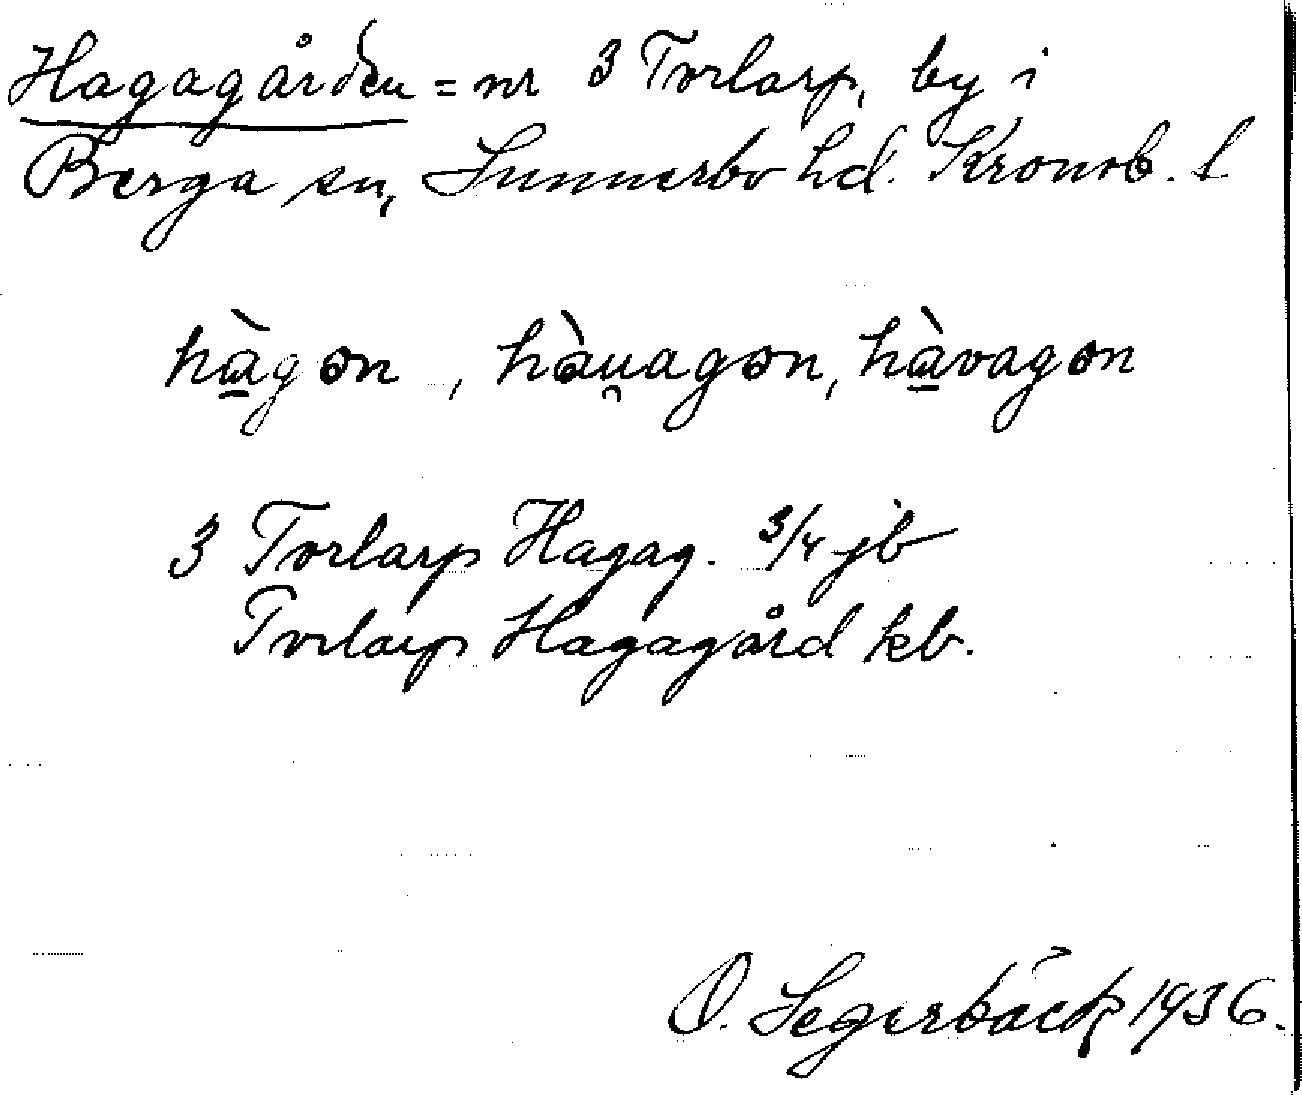 Hagagården = nr 3 Torlarp, by i
Berga sn, Sunnerbo hd. Kronob. l
hàgon, hàu̯agon, hàvagon
3 Torlarp Hagag. 3/4 jb
Torlarp Hagagård kb.
O. Segerbäck 1936.